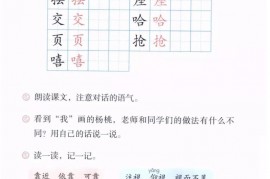 交 交 哈 哈
页 页 抢 抢
嘻 嘻
朗读课文，注意对话的语气。
看到“我”画的杨桃，老师和同学们的做法有什么不
同？用自己的话说一说。
读一读，记一记。
靠近 依靠 可靠